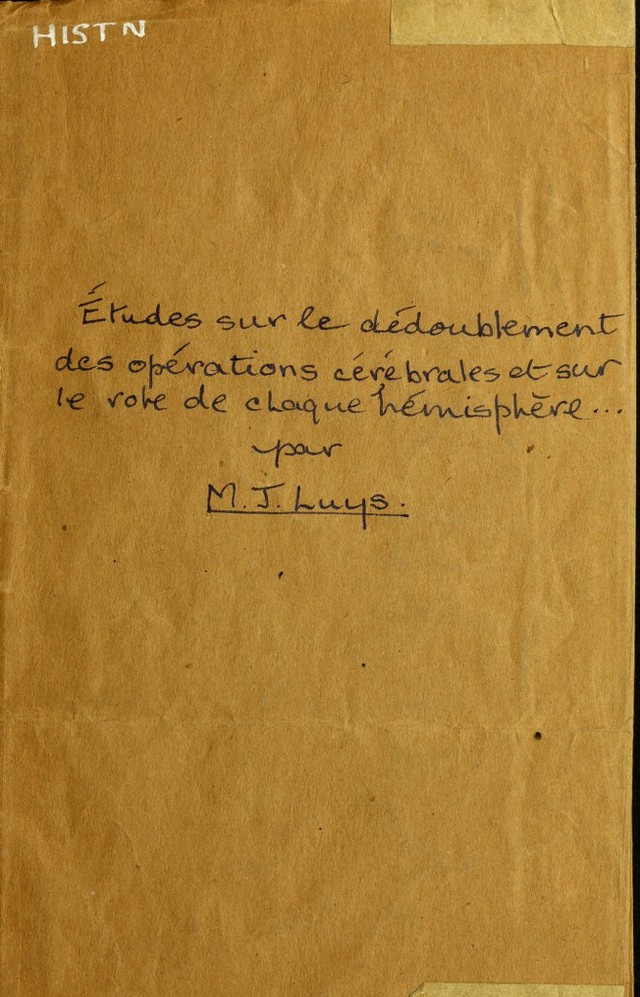 HIST N
Études sur le dédoublement
des opérations cérébrales et sur
le role de chaque hémisphère...
par
M. J. Luys.